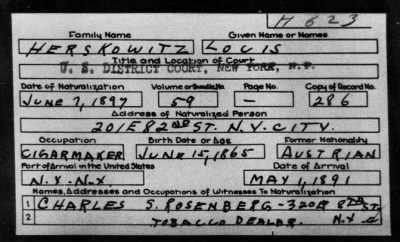 H 623
Family Name Given Name or Names
HERSKOWITZ LOUIS
Title and Location of Court
U. S. DISTRICT COURT, NEW YORK, N.Y.
Date of Naturalization Volume or Bundle No. Page No. Copy of Record No.
JUNE 7, 1897 59 — 286
Address of Naturalized Person
201 E 82ND ST. N.Y. CITY.
Occupation Birth Date or Age Former Nationality
CIGARMAKER JUNE 15, 1865 AUSTRIAN
Port of Arrival in the United States Date of Arrival
N.Y. N.Y. MAY 1, 1891
Names, Addresses and Occupations of Witnesses To Naturalization
1 CHARLES S. ROSENBERG - 320 E 8TH ST.
2 TOBACCO DEALER. N.Y.